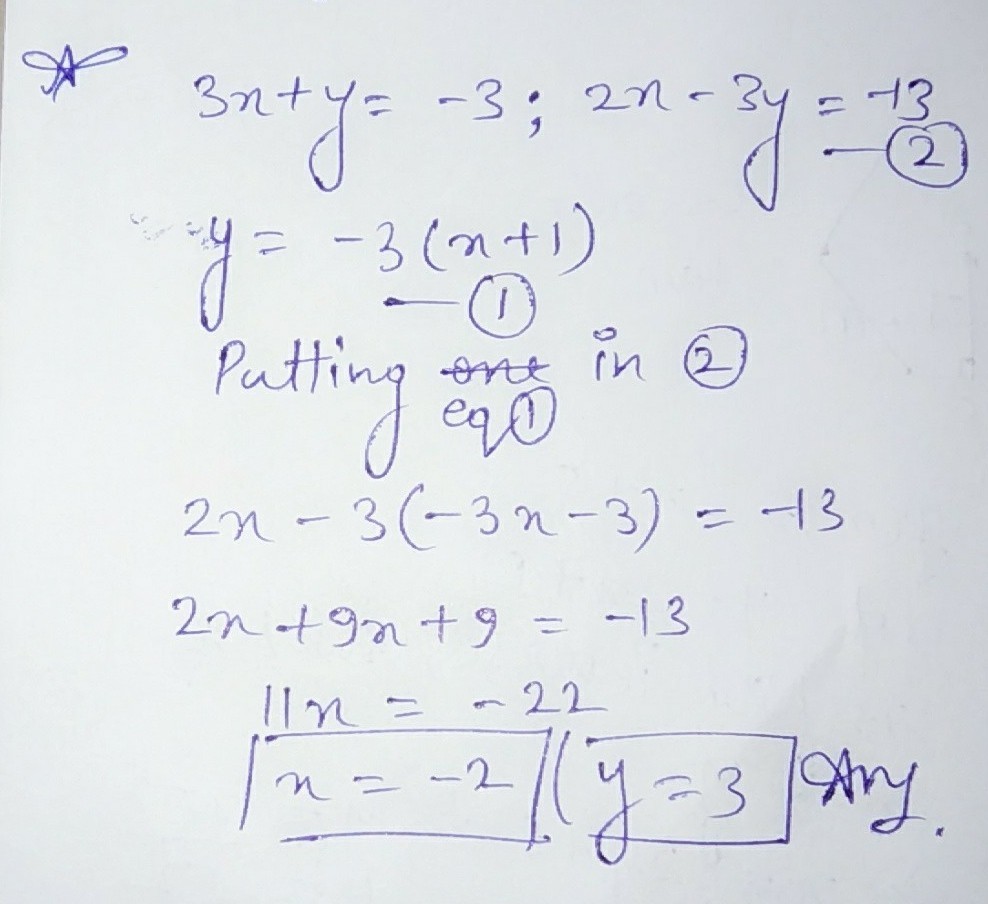 3x+y = -3 ; 2x - 3y = -13
— ②
y = -3(x+1)
— ①
Putting in ②
eq ①
2x - 3(-3x-3) = -13
2x + 9x + 9 = -13
11x = -22
x = -2 y = 3 Ans.